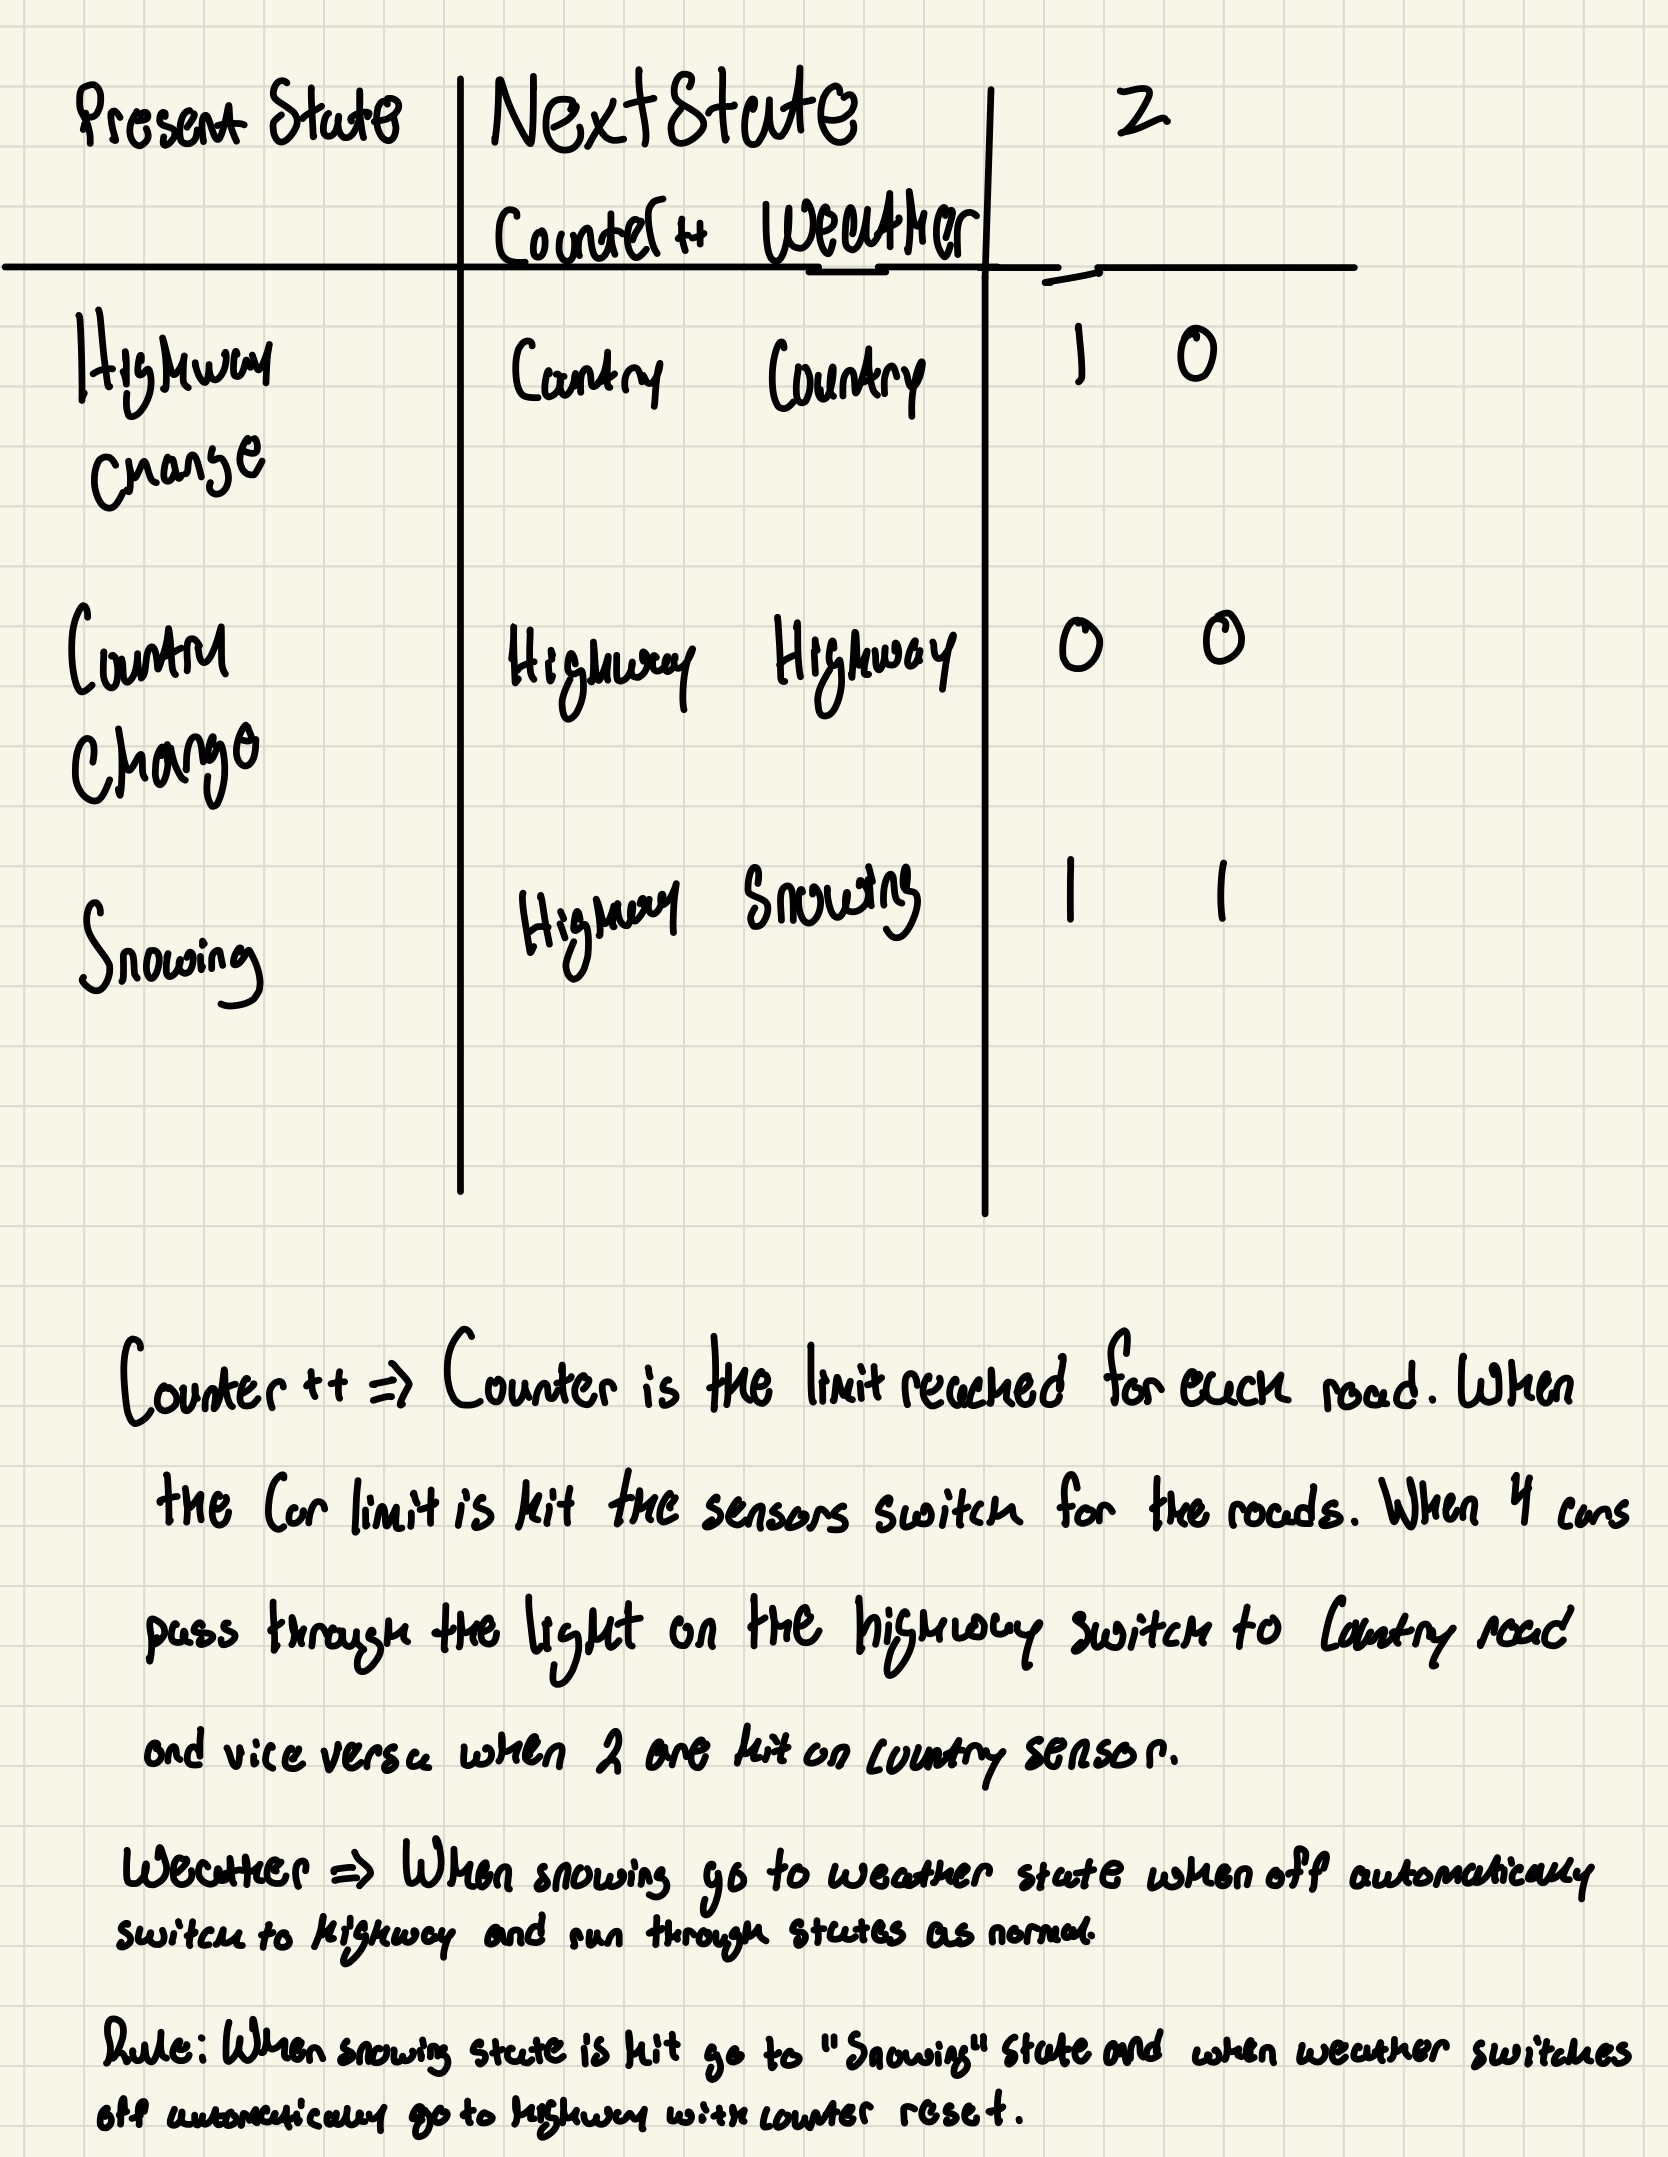 Present State Next State Z
Counter++ Weather
Highway Country Country 1 0
Change
Country Highway Highway 0 0
Change
Snowing Highway Snowing 1 1
Counter ++ => Counter is the limit reached for each road. When
the Car limit is hit the sensors switch for the roads. When 4 cars
pass through the light on the highway switch to Country road
and vice versa when 2 are hit on country sensor.
Weather => When snowing go to weather state when off automatically
switch to highway and run through states as normal.
Rule: When snowing state is hit go to "Snowing" state and when weather switches
off automatically go to highway with counter reset.